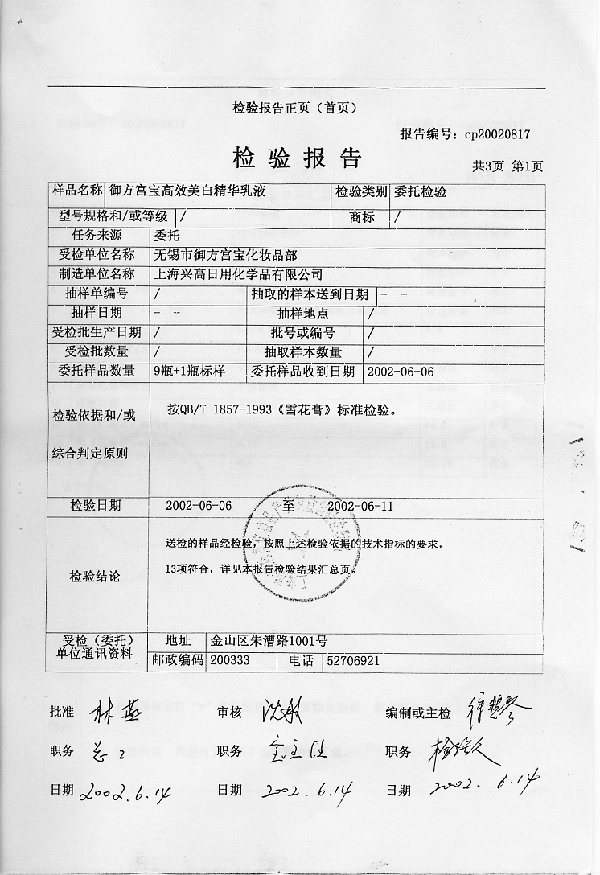 检验报告正页（首页）
报告编号：cp20020817
检验报告
共3页 第1页
样品名称 御方宫宝高效美白精华乳液 检验类别 委托检验
型号规格和/或等级 / 商标 /
任务来源 委托
受检单位名称 无锡市御方宫宝化妆品部
制造单位名称 上海兴高日用化学品有限公司
抽样单编号 / 抽取的样本送到日期 - -
抽样日期 - - 抽样地点 /
受检批生产日期 / 批号或编号 /
受检批数量 / 抽取样本数量 /
委托样品数量 9瓶+1瓶标样 委托样品收到日期 2002-06-06
检验依据和/或
综合判定原则
按QB/T 1857-1993《雪花膏》标准检验。
检验日期 2002-06-06 至 2002-06-11
检验结论
送检的样品经检验，按照上述检验依据的技术指标的要求，
13项符合，详见本报告检验结果汇总页。
受检（委托）
单位通讯资料
地址 金山区朱漕路1001号
邮政编码 200333 电话 52706921
批准 林燕 审核 沈敏 编制或主检
职务 职务 室主任 职务 检验员
日期 2002.6.14 日期 2002.6.14 日期 2002.6.14